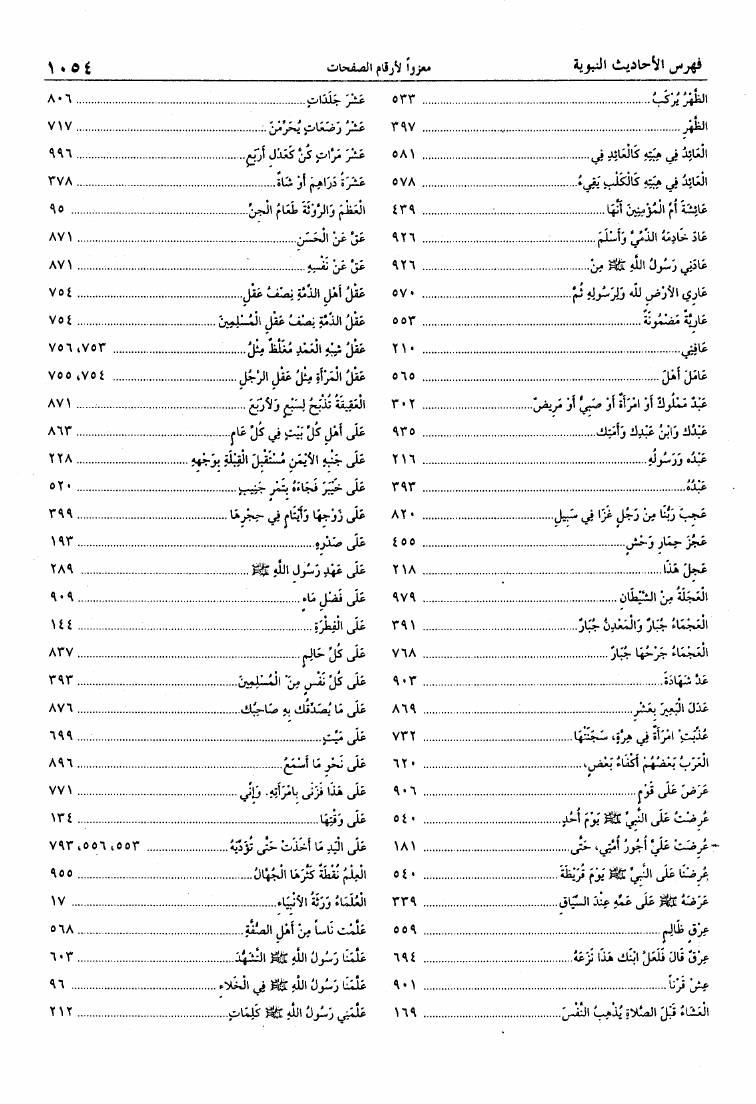 فهرس الأحاديث النبوية معزواً لأرقام الصفحات ١٠٥٤
الظَّهْرُ يُرْكَبُ ٥٣٣
الظَّهْرِ ٣٩٧
الْعَائِدُ فِي هِبَتِهِ كَالْعَائِدِ فِي ٥٨١
الْعَائِدُ فِي هِبَتِهِ كَالْكَلْبِ يَقِيءُ ٥٧٨
عَائِشَةَ أُمِّ الْمُؤْمِنِينَ أَنَّهَا ٤٣٩
عَادَ خَادِمَهُ الذِّمِّيَّ وَأَسْلَمَ ٩٢٦
عَادَنِي رَسُولُ اللَّهِ ﷺ مِنْ ٩٢٦
عَارِي الأَرْضِ للَّه وَلِرَسُولِهِ ثُمَّ ٥٧٠
عَارِيَّةٌ مَضْمُونَةٌ ٥٥٣
عَافِنِي ٢١٠
عَامَلَ أَهْلَ ٥٦٥
عَبْدٌ مَمْلُوكٌ أَوْ امْرَأَةٌ أَوْ صَبِيٌّ أَوْ مَرِيضٌ ٣٠٢
عَبْدُكَ وَابْنُ عَبْدِكَ وَأَمَتِكَ ٩٣٥
عَبْدُه وَرَسُولُهِ ٢١٦
عَبْدُهُ ٣٩٣
عَجِبَ رَبُّنَا مِنْ رَجُلٍ غَزَا فِي سَبِيلِ ٨٢٠
عَجُزَ حِمَارِ وَحْشٍ ٤٥٥
عَجِلَ هَذَا ٢١٨
الْعَجَلَةُ مِنَ الشَّيْطَانِ ٩٧٩
الْعَجْمَاءُ جُبَارٌ وَالْمَعْدِنُ جُبَارٌ ٣٩١
الْعَجْمَاءُ جَرْحُهَا جُبَارٌ ٧٦٨
عَدَّ شَهَادَةَ ٩٠٣
عَدَلَ الْبَعِيرَ بِعَشْرٍ ٨٦٩
عُذِّبَتِ امْرَأَةٌ فِي هِرَّةٍ، سَجَنَتْهَا ٧٣٢
الْعَرَبُ بَعْضُهُمْ أَكْفَاءُ بَعْضٍ، ٦٢٠
عَرَضَ عَلَى قَوْمٍ ٩٠٦
عُرِضْتُ عَلَى النَّبِيِّ ﷺ يَوْمَ أُحُدٍ ٥٤٠
عُرِضَتْ عَلَيَّ أُجُورُ أُمَّتِي، حَتَّى ١٨١
عُرِضْنَا عَلَى النَّبِيِّ ﷺ يَوْمَ قُرَيْظَةَ ٥٤٠
عَرَضَهُ ﷺ عَلَى عَمِّهِ عِنْدَ السِّيَاقِ ٣٣٩
عِرْقٍ ظَالِمٍ ٥٥٩
عِرْقٌ قَالَ فَلَعَلَّ ابْنَكَ هَذَا نَزَعَهُ ٦٩٤
عِشْ قَرْناً ٩٠١
الْعَشَاءُ قَبْلَ الصَّلَاةِ يُذْهِبُ النَّفْسَ ١٦٩
عَشْرَ جَلَدَاتٍ ٨٠٦
عَشْرُ رَضَعَاتٍ يُحَرِّمْنَ ٧١٧
عَشْرَ مَرَّاتٍ كُنَّ كَعَدْلِ أَرْبَعِ ٩٩٦
عَشَرَةُ دَرَاهِمَ أَوْ شَاةٌ ٣٧٨
الْعَظْمَ وَالرَّوْثَةَ طَعَامُ الْجِنِّ ٩٥
عَقَّ عَنْ الْحَسَنِ ٨٧١
عَقَّ عَنْ نَفْسِهِ ٨٧١
عَقْلُ أَهْلِ الذِّمَّةِ نِصْفُ عَقْلِ ٧٥٤
عَقْلُ الذِّمَّةِ نِصْفُ عَقْلِ الْمُسْلِمِينَ ٧٥٤
عَقْلُ شِبْهِ الْعَمْدِ مُغَلَّظٌ مِثْلُ ٧٥٣، ٧٥٦
عَقْلُ الْمَرْأَةِ مِثْلُ عَقْلِ الرَّجُلِ ٧٥٤، ٧٥٥
الْعَقِيقَةُ تُذْبَحُ لِسَبْعٍ وَلأَرْبَعَ ٨٧١
عَلَى أَهْلِ كُلِّ بَيْتٍ فِي كُلِّ عَامٍ ٨٦٣
عَلَى جَنْبِهِ الأَيْمَنِ مُسْتَقْبِلَ الْقِبْلَةِ بِوَجْهِهِ ٢٢٨
عَلَى خَيْبَرَ فَجَاءَهُ بِتَمْرٍ جَنِيبٍ ٥٢٠
عَلَى زَوْجِهَا وَأَيْتَامٍ فِي حِجْرِهَا ٣٩٩
عَلَى صَدْرِهِ ١٩٣
عَلَى عَهْدِ رَسُولِ اللَّهِ ﷺ ٢٨٩
عَلَى فَضْلِ مَاءٍ ٩٠٩
عَلَى الْفِطْرَةِ ١٤٤
عَلَى كُلِّ حَالِمٍ ٨٣٧
عَلَى كُلِّ نَفْسٍ مِنَ الْمُسْلِمِينَ ٣٩٣
عَلَى مَا يُصَدِّقُكَ بِهِ صَاحِبُكَ ٨٧٦
عَلَى مَيِّتٍ ٦٩٩
عَلَى نَحْوِ مَا أَسْمَعُ ٨٩٦
عَلَى هَذَا فَزَنَى بِامْرَأَتِهِ. وَإِنِّي ٧٧١
عَلَى وَقْتِهَا ١٣٤
عَلَى الْيَدِ مَا أَخَذَتْ حَتَّى تُؤَدِّيَهُ ٥٥٣، ٥٥٦، ٧٩٣
الْعِلْمُ نُقْطَةٌ كَثَّرَهَا الْجُهَّالُ ٩٥٥
الْعُلَمَاءُ وَرَثَةُ الأَنْبِيَاءِ ١٧
عَلَّمْتُ نَاساً مِنْ أَهْلِ الصُّفَّةِ ٥٦٨
عَلَّمَنَا رَسُولُ اللَّهِ ﷺ التَّشَهُّدَ ٦٠٣
عَلَّمَنَا رَسُولُ اللَّهِ ﷺ فِي الْخَلَاءِ ٩٦
عَلَّمَنِي رَسُولُ اللَّهِ ﷺ كَلِمَاتٍ ٢١٢